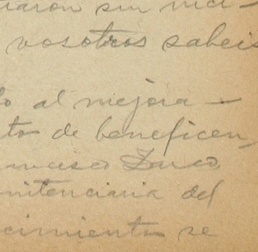 aron sin nece-
vosotros sabeis
lo al mejora-
to de beneficen,
ancisco Zarco,
nitenciaria del
cimiento se